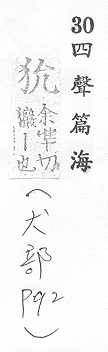 30 四聲篇海
狁
余準切
玁丨也
(犬部 P92)